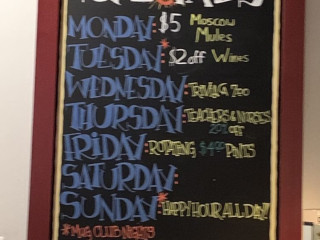 MONDAY: $5 Moscow Mules
TUESDAY: $2 off Wines
WEDNESDAY: TRIVIA @ 7:00
THURSDAY: TEACHERS & NURSES 20% off
FRIDAY: ROTATING $4.00 PINTS
SATURDAY:
SUNDAY: HAPPY HOUR ALL DAY!
*MUG CLUB NIGHTS